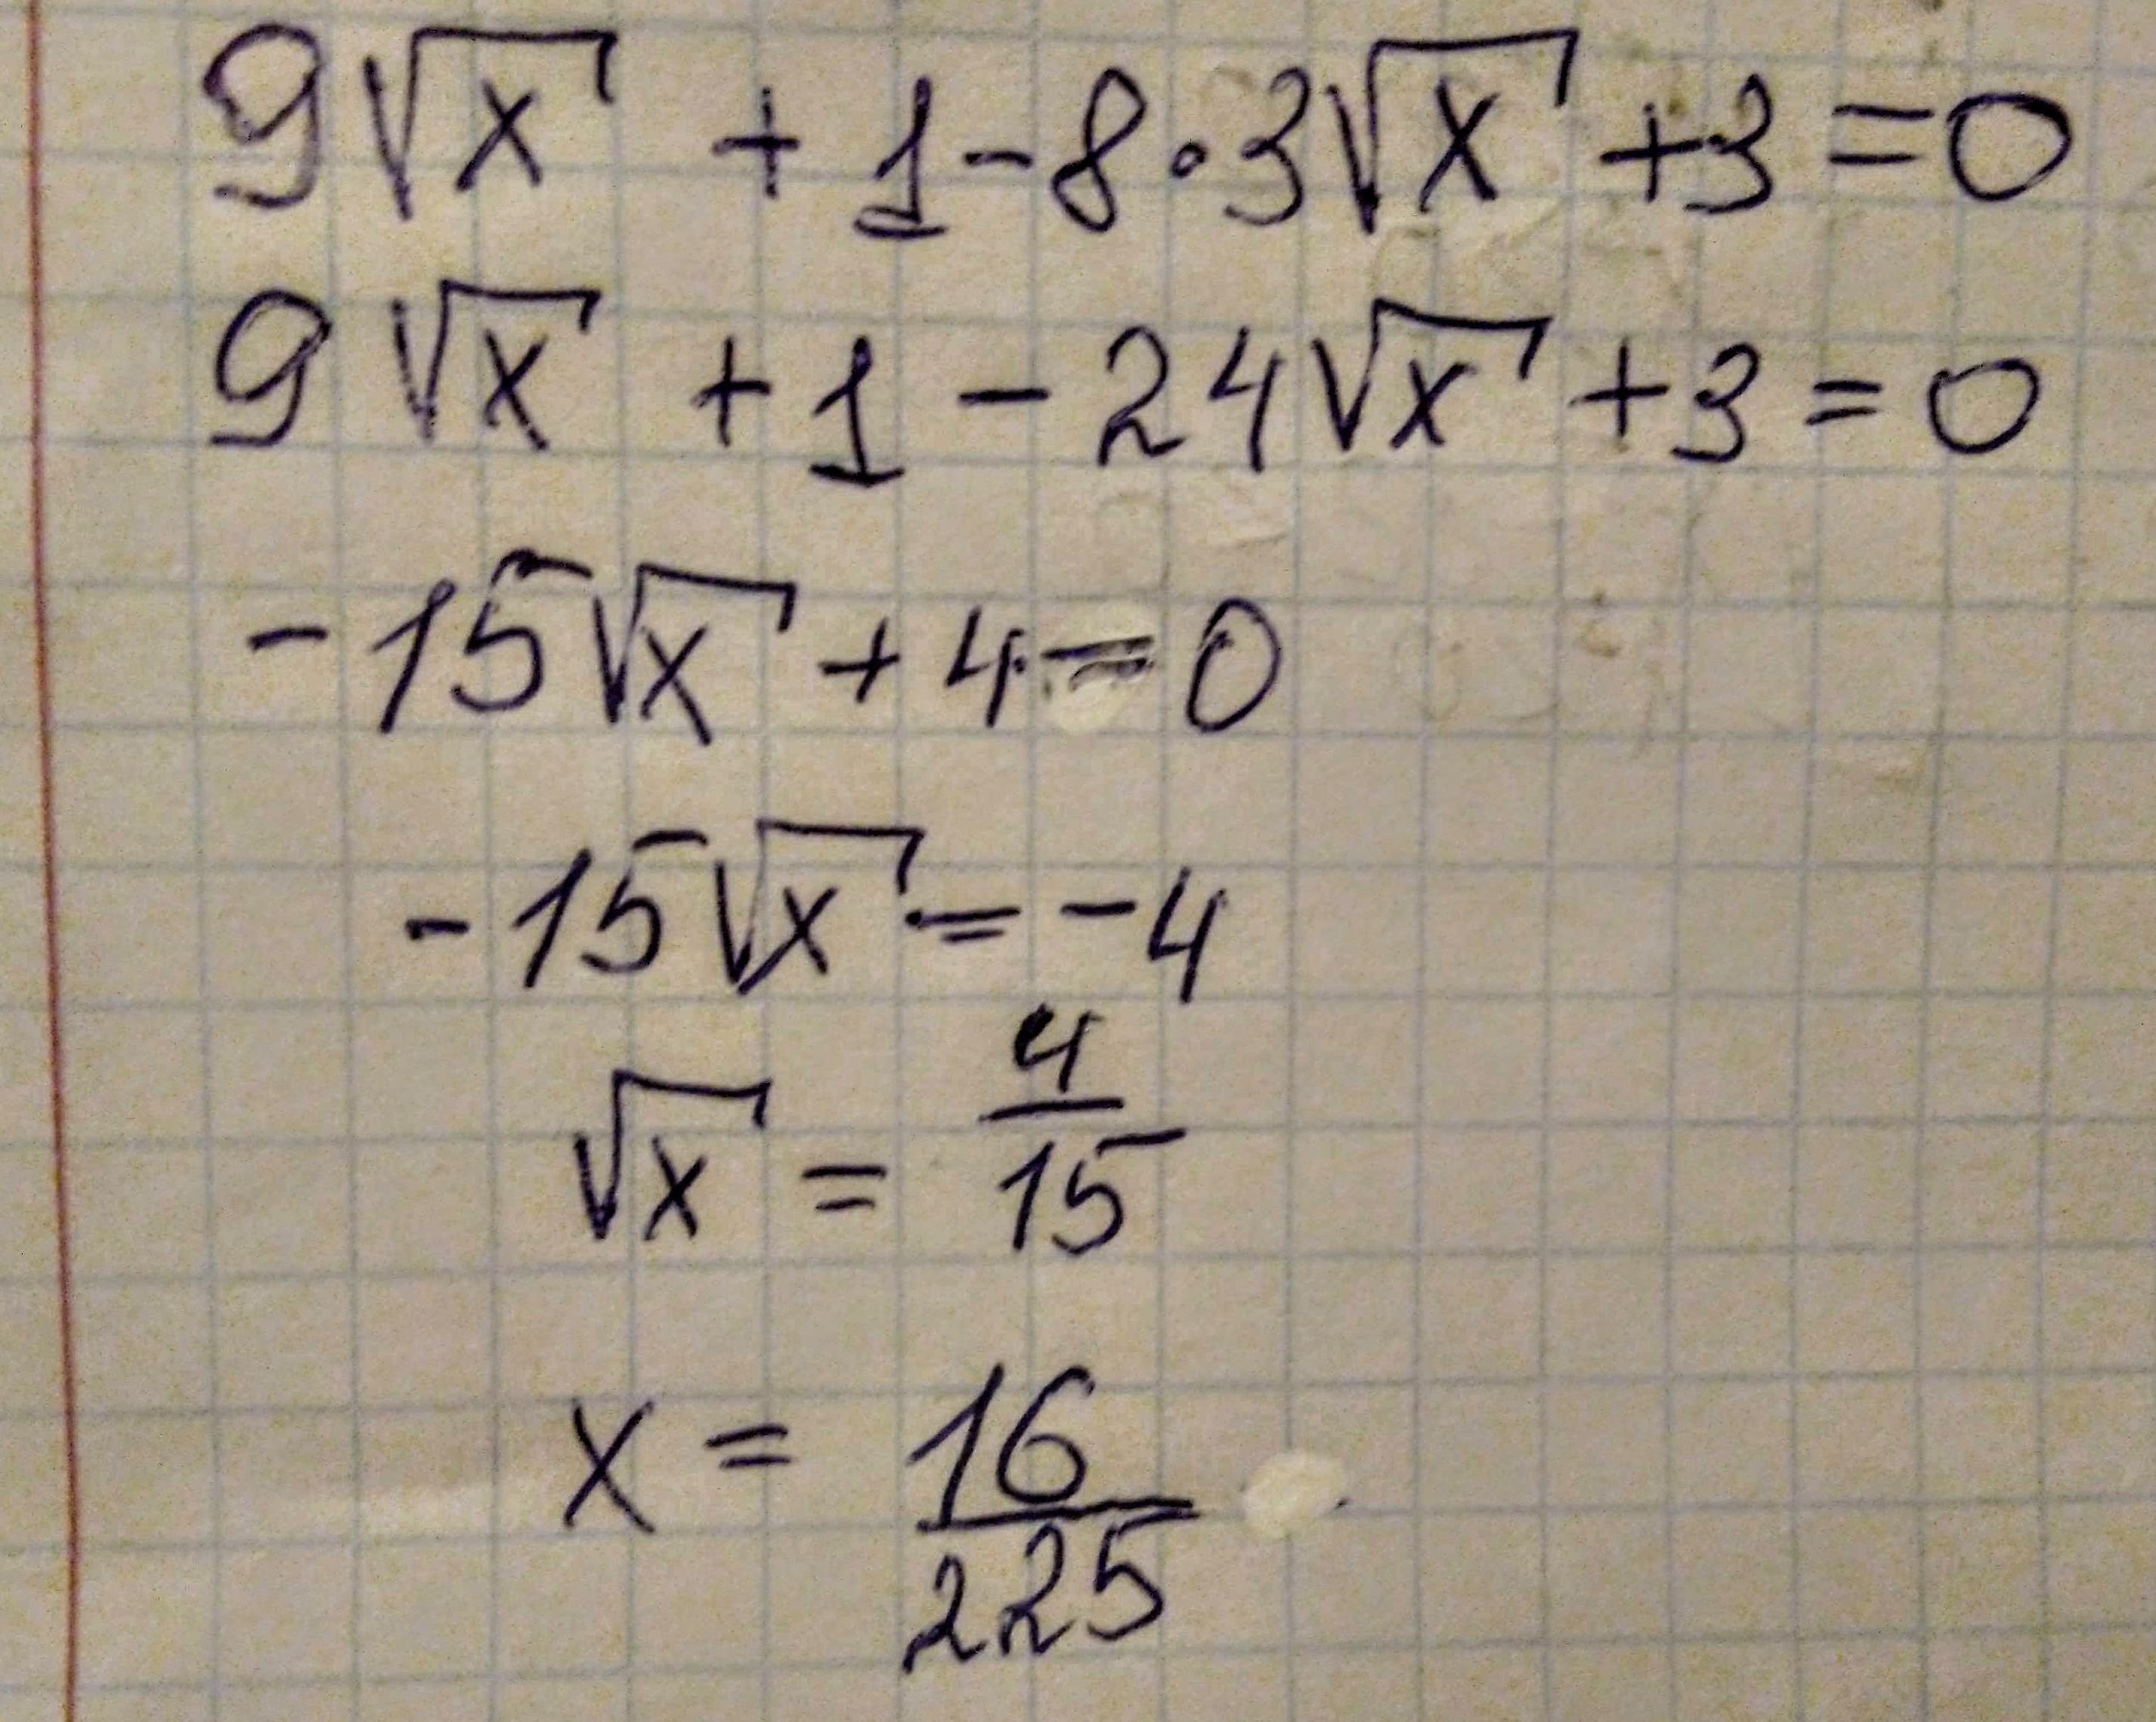 9√x + 1 - 8 · 3√x + 3 = 0
9√x + 1 - 24√x + 3 = 0
-15√x + 4 = 0
-15√x = -4
√x = 4/15
x = 16/225